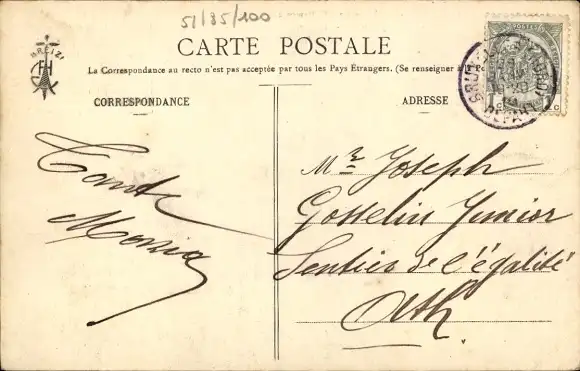 51/35/100
BREIZ
CARTE POSTALE
La Correspondance au recto n'est pas acceptée par tous les Pays Étrangers. (Se renseigner à la
CORRESPONDANCE
ADRESSE
POSTES
1 c.
DEPART
Mr Joseph
Gosselin Junior
Sentier de l'égalité
Ath